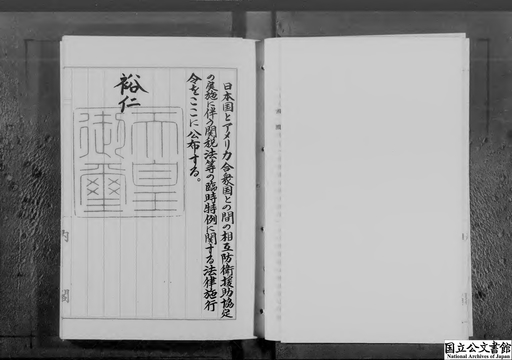 日本国とアメリカ合衆国との間の相互防衛援助協定
の実施に伴う関税法等の臨時特例に関する法律施行
令をここに公布する。
裕仁
天皇
御璽
内閣
国立公文書館
National Archives of Japan